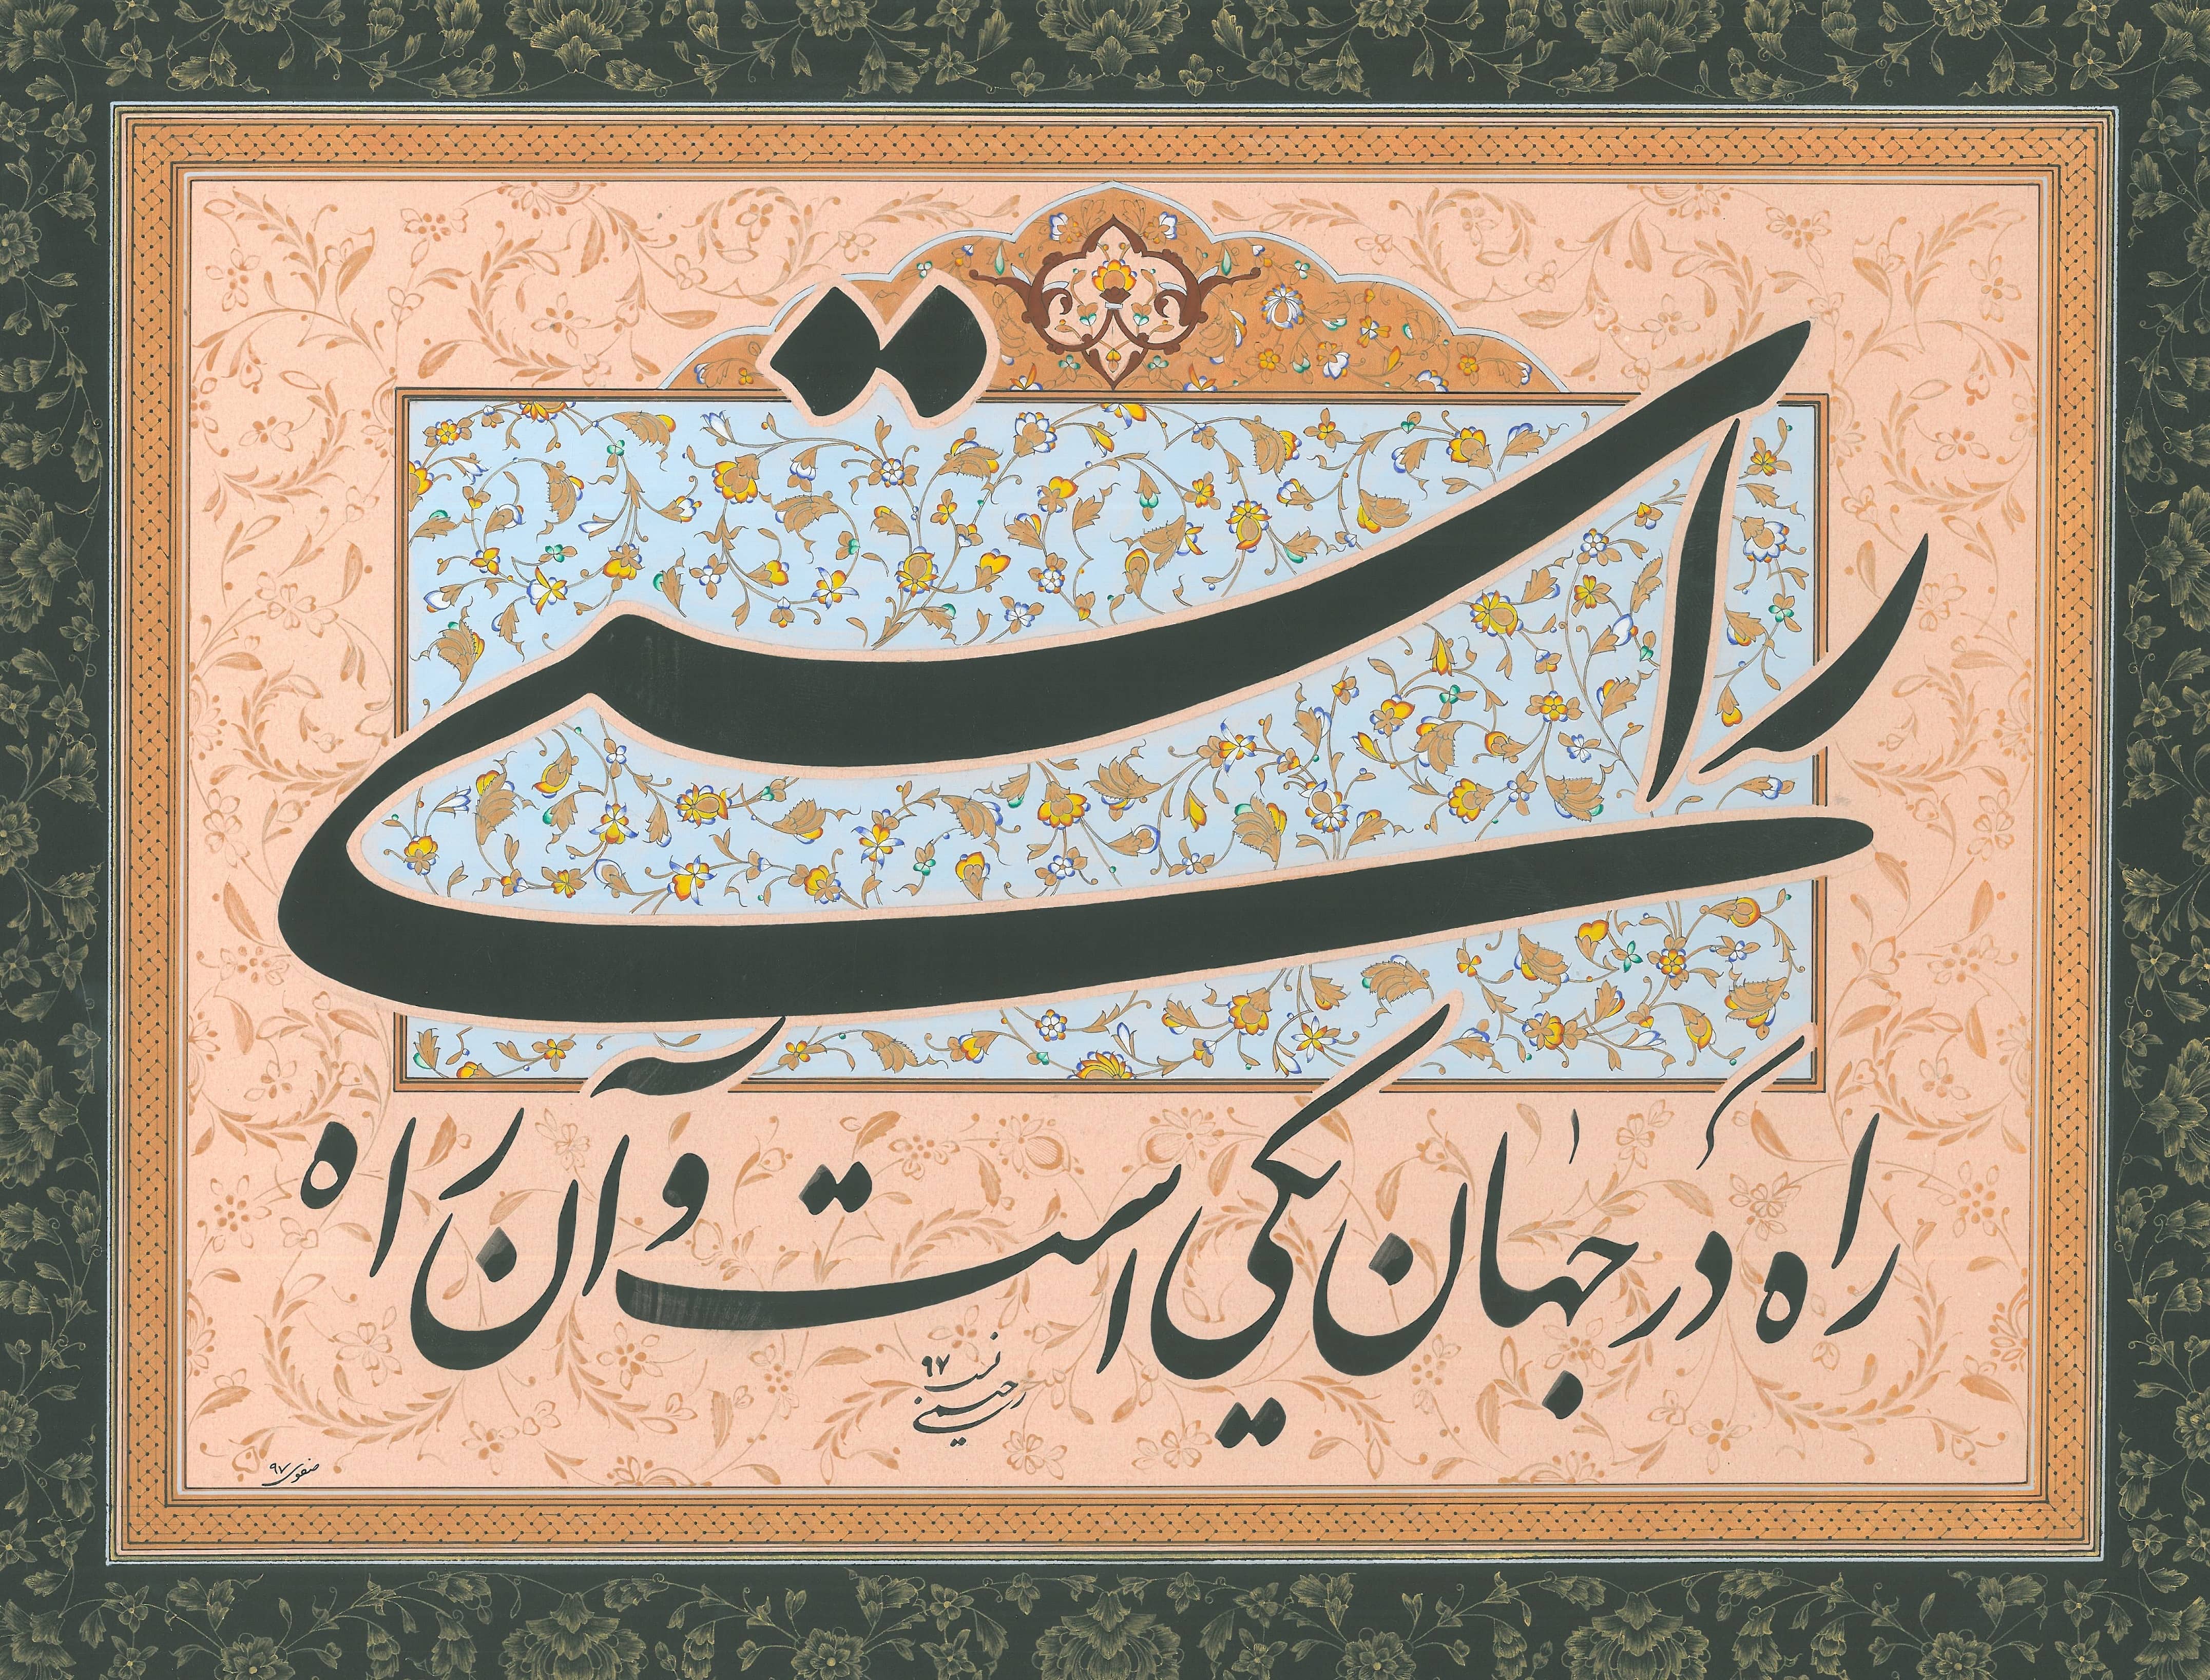 راستی
راه در جهان یکی است و آن راه
رحیمی ۹۷
صفوی ۹۷